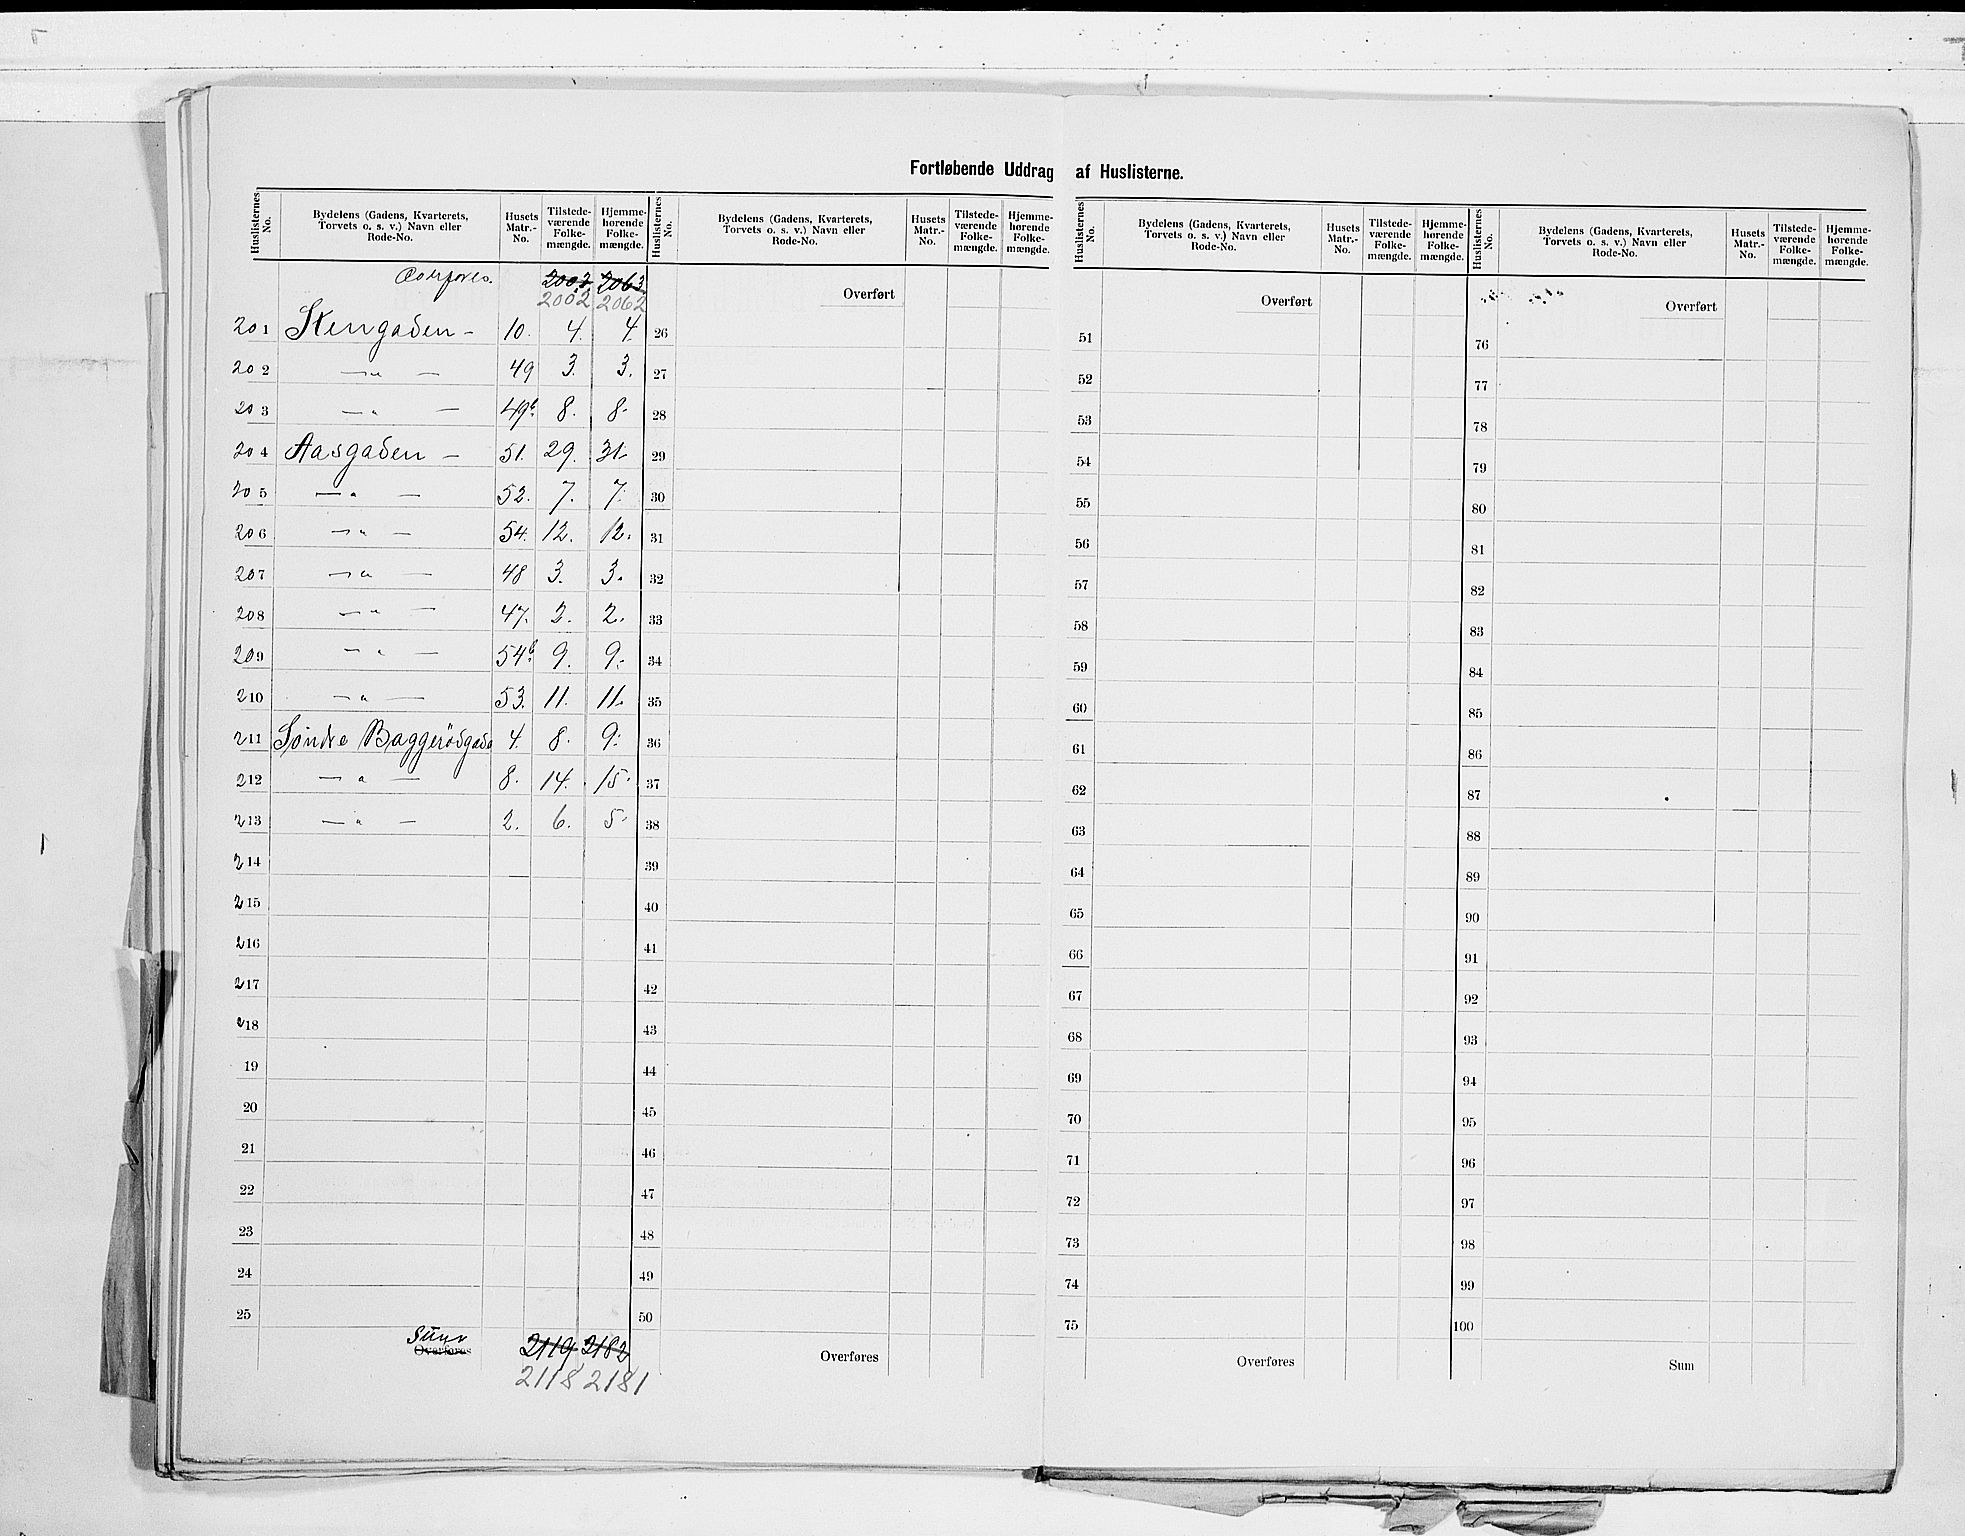 Fortløbende Uddrag af Huslisterne.
Huslisternes No. Bydelens (Gadens, Kvarterets, Torvets o. s. v.) Navn eller Rode-No. Husets Matr.-No. Tilstedeværende Folkemængde. Hjemmehørende Folkemængde.
2003 2063
2002 2062
201 Stengaden - 10. 4. 4.
202 -"- 49 3. 3.
203 -"- 49b. 8. 8.
204 Aasgaden - 51. 29. 31.
205 -"- 52. 7. 7.
206 -"- 54. 12. 12.
207 -"- 48 3. 3.
208 -"- 47. 2. 2.
209 -"- 54b. 9. 9.
210 -"- 53. 11. 11.
211 Søndre Baggerödgade 4. 8. 9.
212 -"- 8. 14. 15.
213 -"- 2. 6. 5.
214
215
216
217
218
19
20
21
22
23
24
25
Sum
Overføres 2119 2182
2118 2181
Huslisternes No. Bydelens (Gadens, Kvarterets, Torvets o. s. v.) Navn eller Rode-No. Husets Matr.-No. Tilstedeværende Folkemængde. Hjemmehørende Folkemængde.
Overført
26
27
28
29
30
31
32
33
34
35
36
37
38
39
40
41
42
43
44
45
46
47
48
49
50
Overføres
Huslisternes No. Bydelens (Gadens, Kvarterets, Torvets o. s. v.) Navn eller Rode-No. Husets Matr.-No. Tilstedeværende Folkemængde. Hjemmehørende Folkemængde.
Overført
51
52
53
54
55
56
57
58
59
60
61
62
63
64
65
66
67
68
69
70
71
72
73
74
75
Overføres
Huslisternes No. Bydelens (Gadens, Kvarterets, Torvets o. s. v.) Navn eller Rode-No. Husets Matr.-No. Tilstedeværende Folkemængde. Hjemmehørende Folkemængde.
Overført
76
77
78
79
80
81
82
83
84
85
86
87
88
89
90
91
92
93
94
95
96
97
98
99
100
Sum